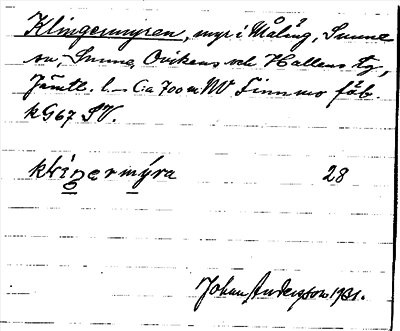 Klingermyren, myr i Måläng, Sunne
sn, Sunne, Ovikens och Hallens tg,
Jämtl. l. – C:a 700 m NV Finnmo fäb.
kG67 SV.
klingermýra 28
Johan Anderson 1931.